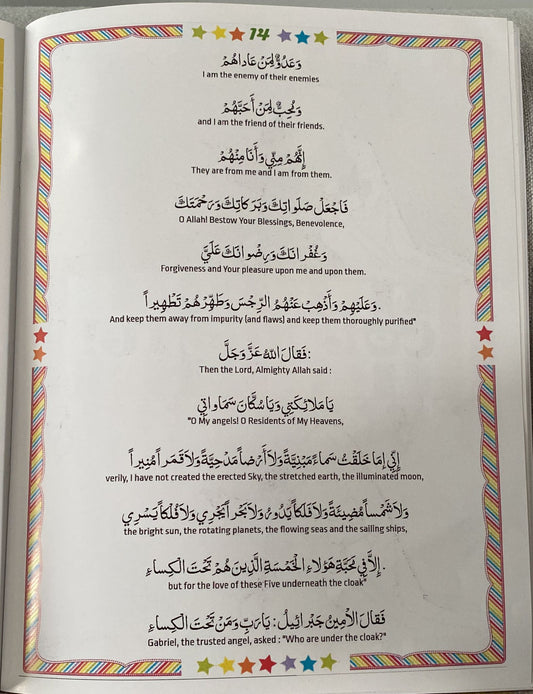 14
وَعَدُوٌّ لِمَنْ عَادَاهُمْ
I am the enemy of their enemies
وَمُحِبٌّ لِمَنْ أَحَبَّهُمْ
and I am the friend of their friends.
إِنَّهُمْ مِنِّي وَأَنَا مِنْهُمْ
They are from me and I am from them.
فَاجْعَلْ صَلَوَاتِكَ وَبَرَكَاتِكَ وَرَحْمَتَكَ
O Allah! Bestow Your Blessings, Benevolence,
وَغُفْرَانَكَ وَرِضْوَانَكَ عَلَيَّ
Forgiveness and Your pleasure upon me and upon them.
وَعَلَيْهِمْ وَأَذْهِبْ عَنْهُمُ الرِّجْسَ وَطَهِّرْهُمْ تَطْهِيراً.
And keep them away from impurity (and flaws) and keep them thoroughly purified"
فَقَالَ اللهُ عَزَّ وَجَلَّ:
Then the Lord, Almighty Allah said :
يَا مَلَائِكَتِي وَيَا سُكَّانَ سَمَاوَاتِي
"O My angels! O Residents of My Heavens,
إِنِّي مَا خَلَقْتُ سَمَاءً مَبْنِيَّةً وَلَا أَرْضاً مَدْحِيَّةً وَلَا قَمَراً مُنِيراً
verily, I have not created the erected Sky, the stretched earth, the illuminated moon,
وَلَا شَمْساً مُضِيئَةً وَلَا فَلَكاً يَدُورُ وَلَا بَحْراً يَجْرِي وَلَا فُلْكاً يَسْرِي
the bright sun, the rotating planets, the flowing seas and the sailing ships,
إِلَّا فِي مَحَبَّةِ هَؤُلَاءِ الْخَمْسَةِ الَّذِينَ هُمْ تَحْتَ الْكِسَاءِ.
but for the love of these Five underneath the cloak"
فَقَالَ الْأَمِينُ جَبْرَائِيلُ: يَا رَبِّ وَمَنْ تَحْتَ الْكِسَاءِ
Gabriel, the trusted angel, asked : "Who are under the cloak?"
14